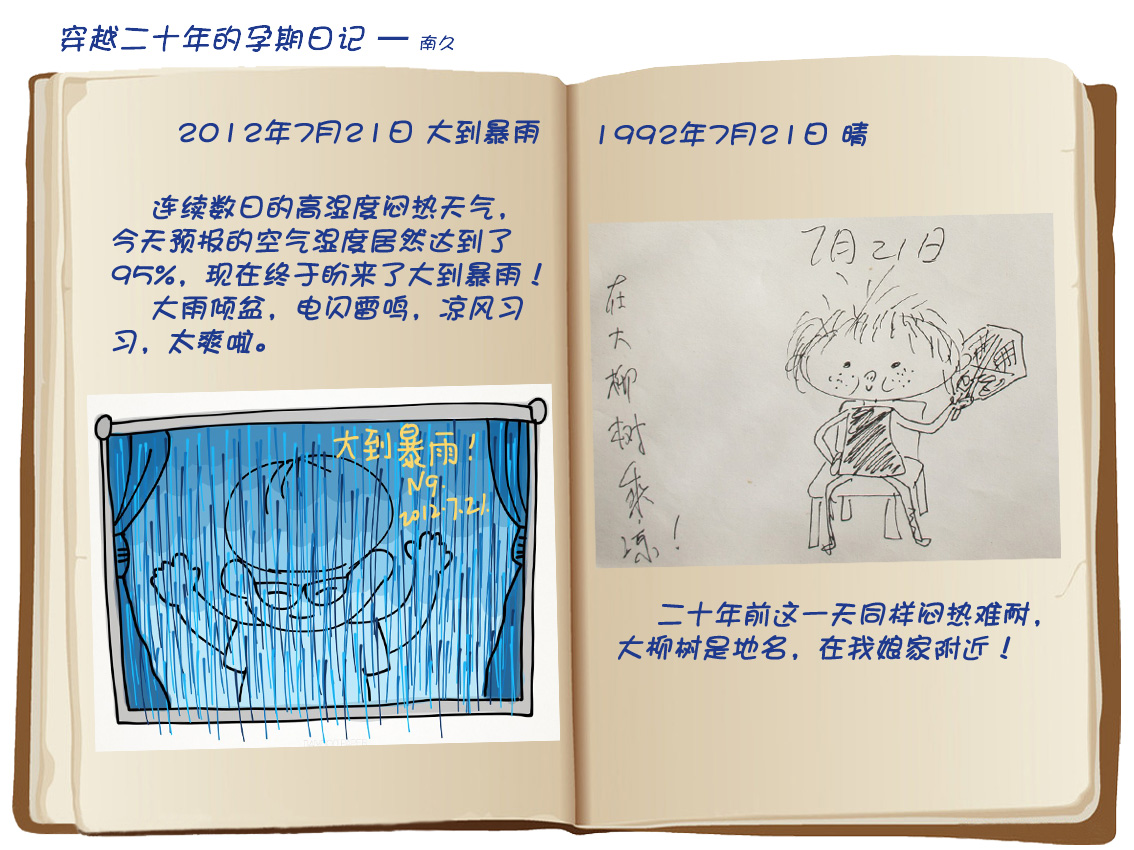 穿越二十年的孕期日记 — 南久
2012年7月21日 大到暴雨
连续数日的高湿度闷热天气，
今天预报的空气湿度居然达到了
95%，现在终于盼来了大到暴雨！
大雨倾盆，电闪雷鸣，凉风习
习，太爽啦。
大到暴雨！
N9.
2012.7.21.
1992年7月21日 晴
7月21日
在大柳树乘凉！
二十年前这一天同样闷热难耐，
大柳树是地名，在我娘家附近！